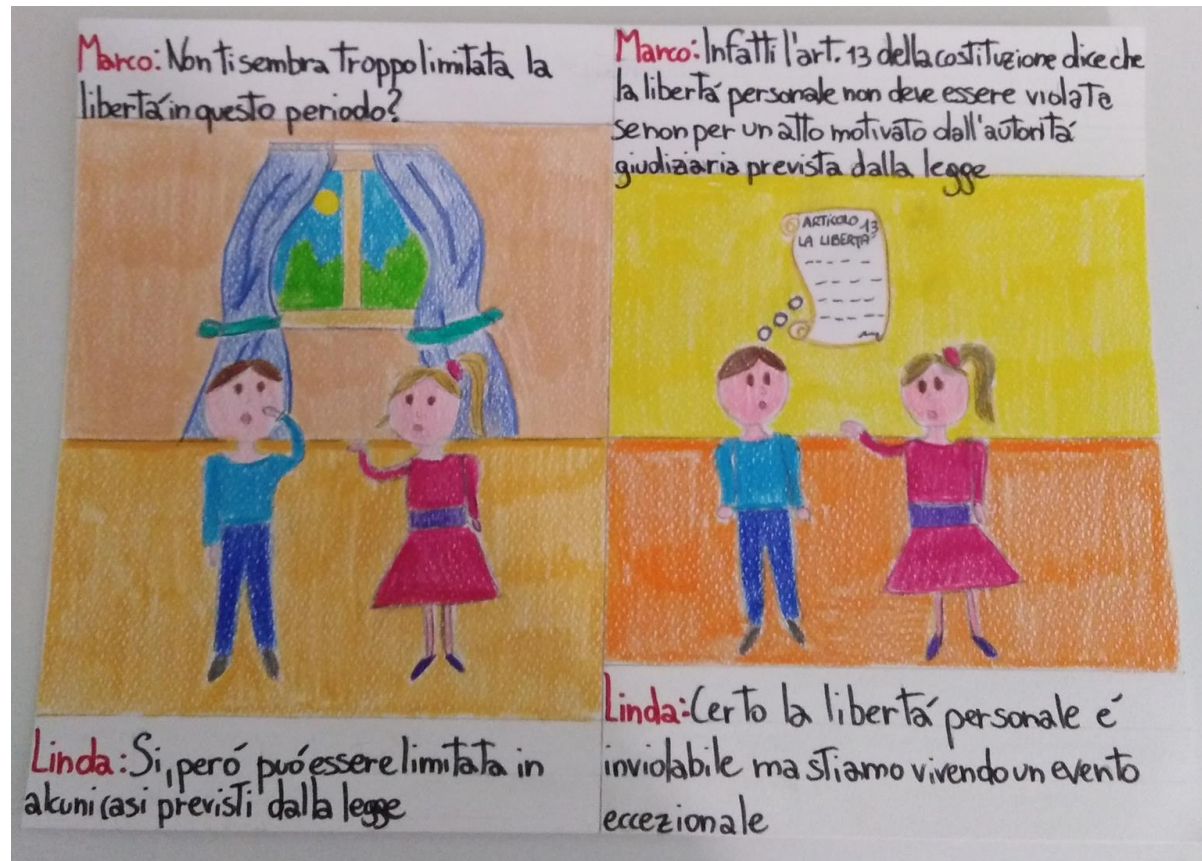 Marco: Non ti sembra troppo limitata la
libertá in questo periodo?
Linda: Si, peró puó essere limitata in
alcuni casi previsti dalla legge
Marco: Infatti l'art. 13 della costituzione dice che
la libertá personale non deve essere violata
se non per un atto motivato dall'autoritá
giudiziaria prevista dalla legge
ARTICOLO 13
LA LIBERTÁ
Linda: Certo la libertá personale é
inviolabile ma stiamo vivendo un evento
eccezionale